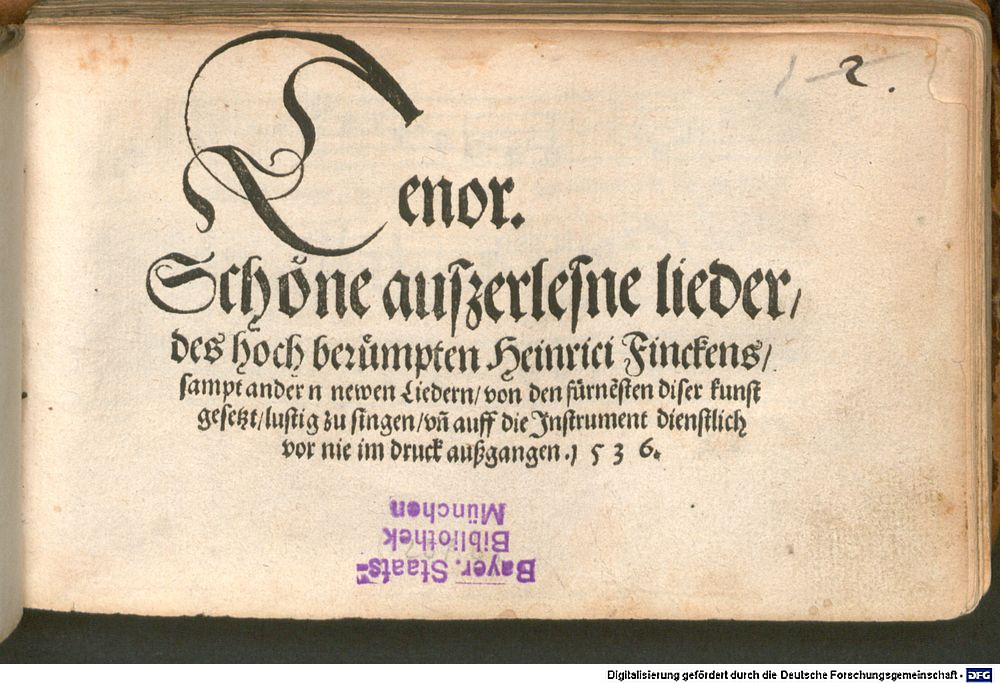 1 2.
Tenor.
Schoͤne auſzerleſne lieder/
des hoch beruͤmpten Heinrici Finckens/
ſampt ander n newen Liedern/ von den fürnẽſten diſer kunſt
geſetzt/ luſtig zu ſingen/ vñ auff die Inſtrument dienſtlich
vor nie im druck außgangen. 1 5 3 6.
Bayer. Staats-
Bibliothek
München
Digitalisierung gefördert durch die Deutsche Forschungsgemeinschaft - DFG